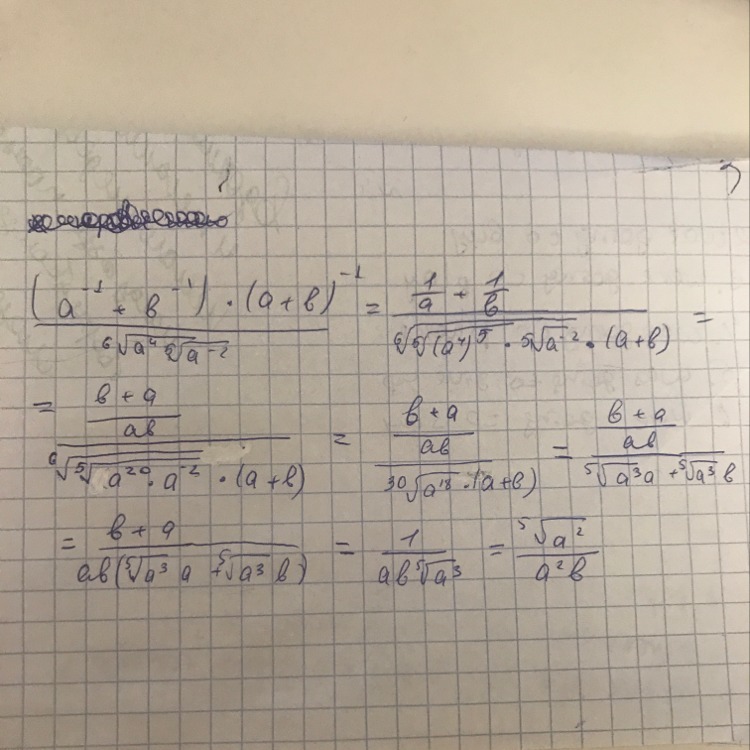 (a⁻¹ + b⁻¹) · (a+b)⁻¹ / ⁶√(a⁴ ⁵√(a⁻²)) = (1/a + 1/b) / (⁶√(⁵√((a⁴)⁵) · ⁵√(a⁻²)) · (a+b)) =
= ((b+a)/(ab)) / (⁶√(⁵√(a²⁰ · a⁻²)) · (a+b)) = ((b+a)/(ab)) / (³⁰√(a¹⁸) · (a+b)) = ((b+a)/(ab)) / (⁵√(a³) a + ⁵√(a³) b)
= (b+a) / (ab(⁵√(a³) a + ⁵√(a³) b)) = 1 / (ab ⁵√(a³)) = ⁵√(a²) / (a²b)